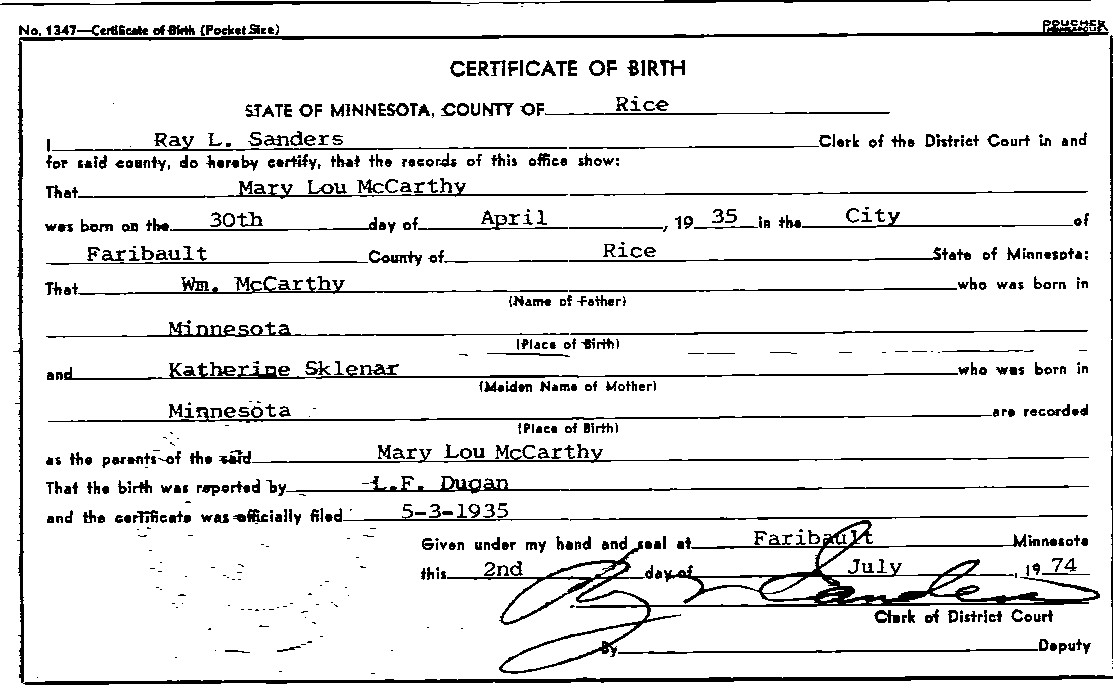 No. 1347—Certificate of Birth (Pocket Size) POUCHER MINNEAPOLIS
CERTIFICATE OF BIRTH
STATE OF MINNESOTA, COUNTY OF Rice
I Ray L. Sanders Clerk of the District Court in and
for said county, do hereby certify, that the records of this office show:
That Mary Lou McCarthy
was born on the 30th day of April, 19 35 in the City of
Faribault County of Rice State of Minnesota:
That Wm. McCarthy who was born in
(Name of Father)
Minnesota
(Place of Birth)
and Katherine Sklenar who was born in
(Maiden Name of Mother)
Minnesota are recorded
(Place of Birth)
as the parents of the said Mary Lou McCarthy
That the birth was reported by L.F. Dugan
and the certificate was officially filed 5-3-1935
Given under my hand and seal at Faribault Minnesota
this 2nd day of July, 19 74
Ray L Sanders
Clerk of District Court
By Deputy